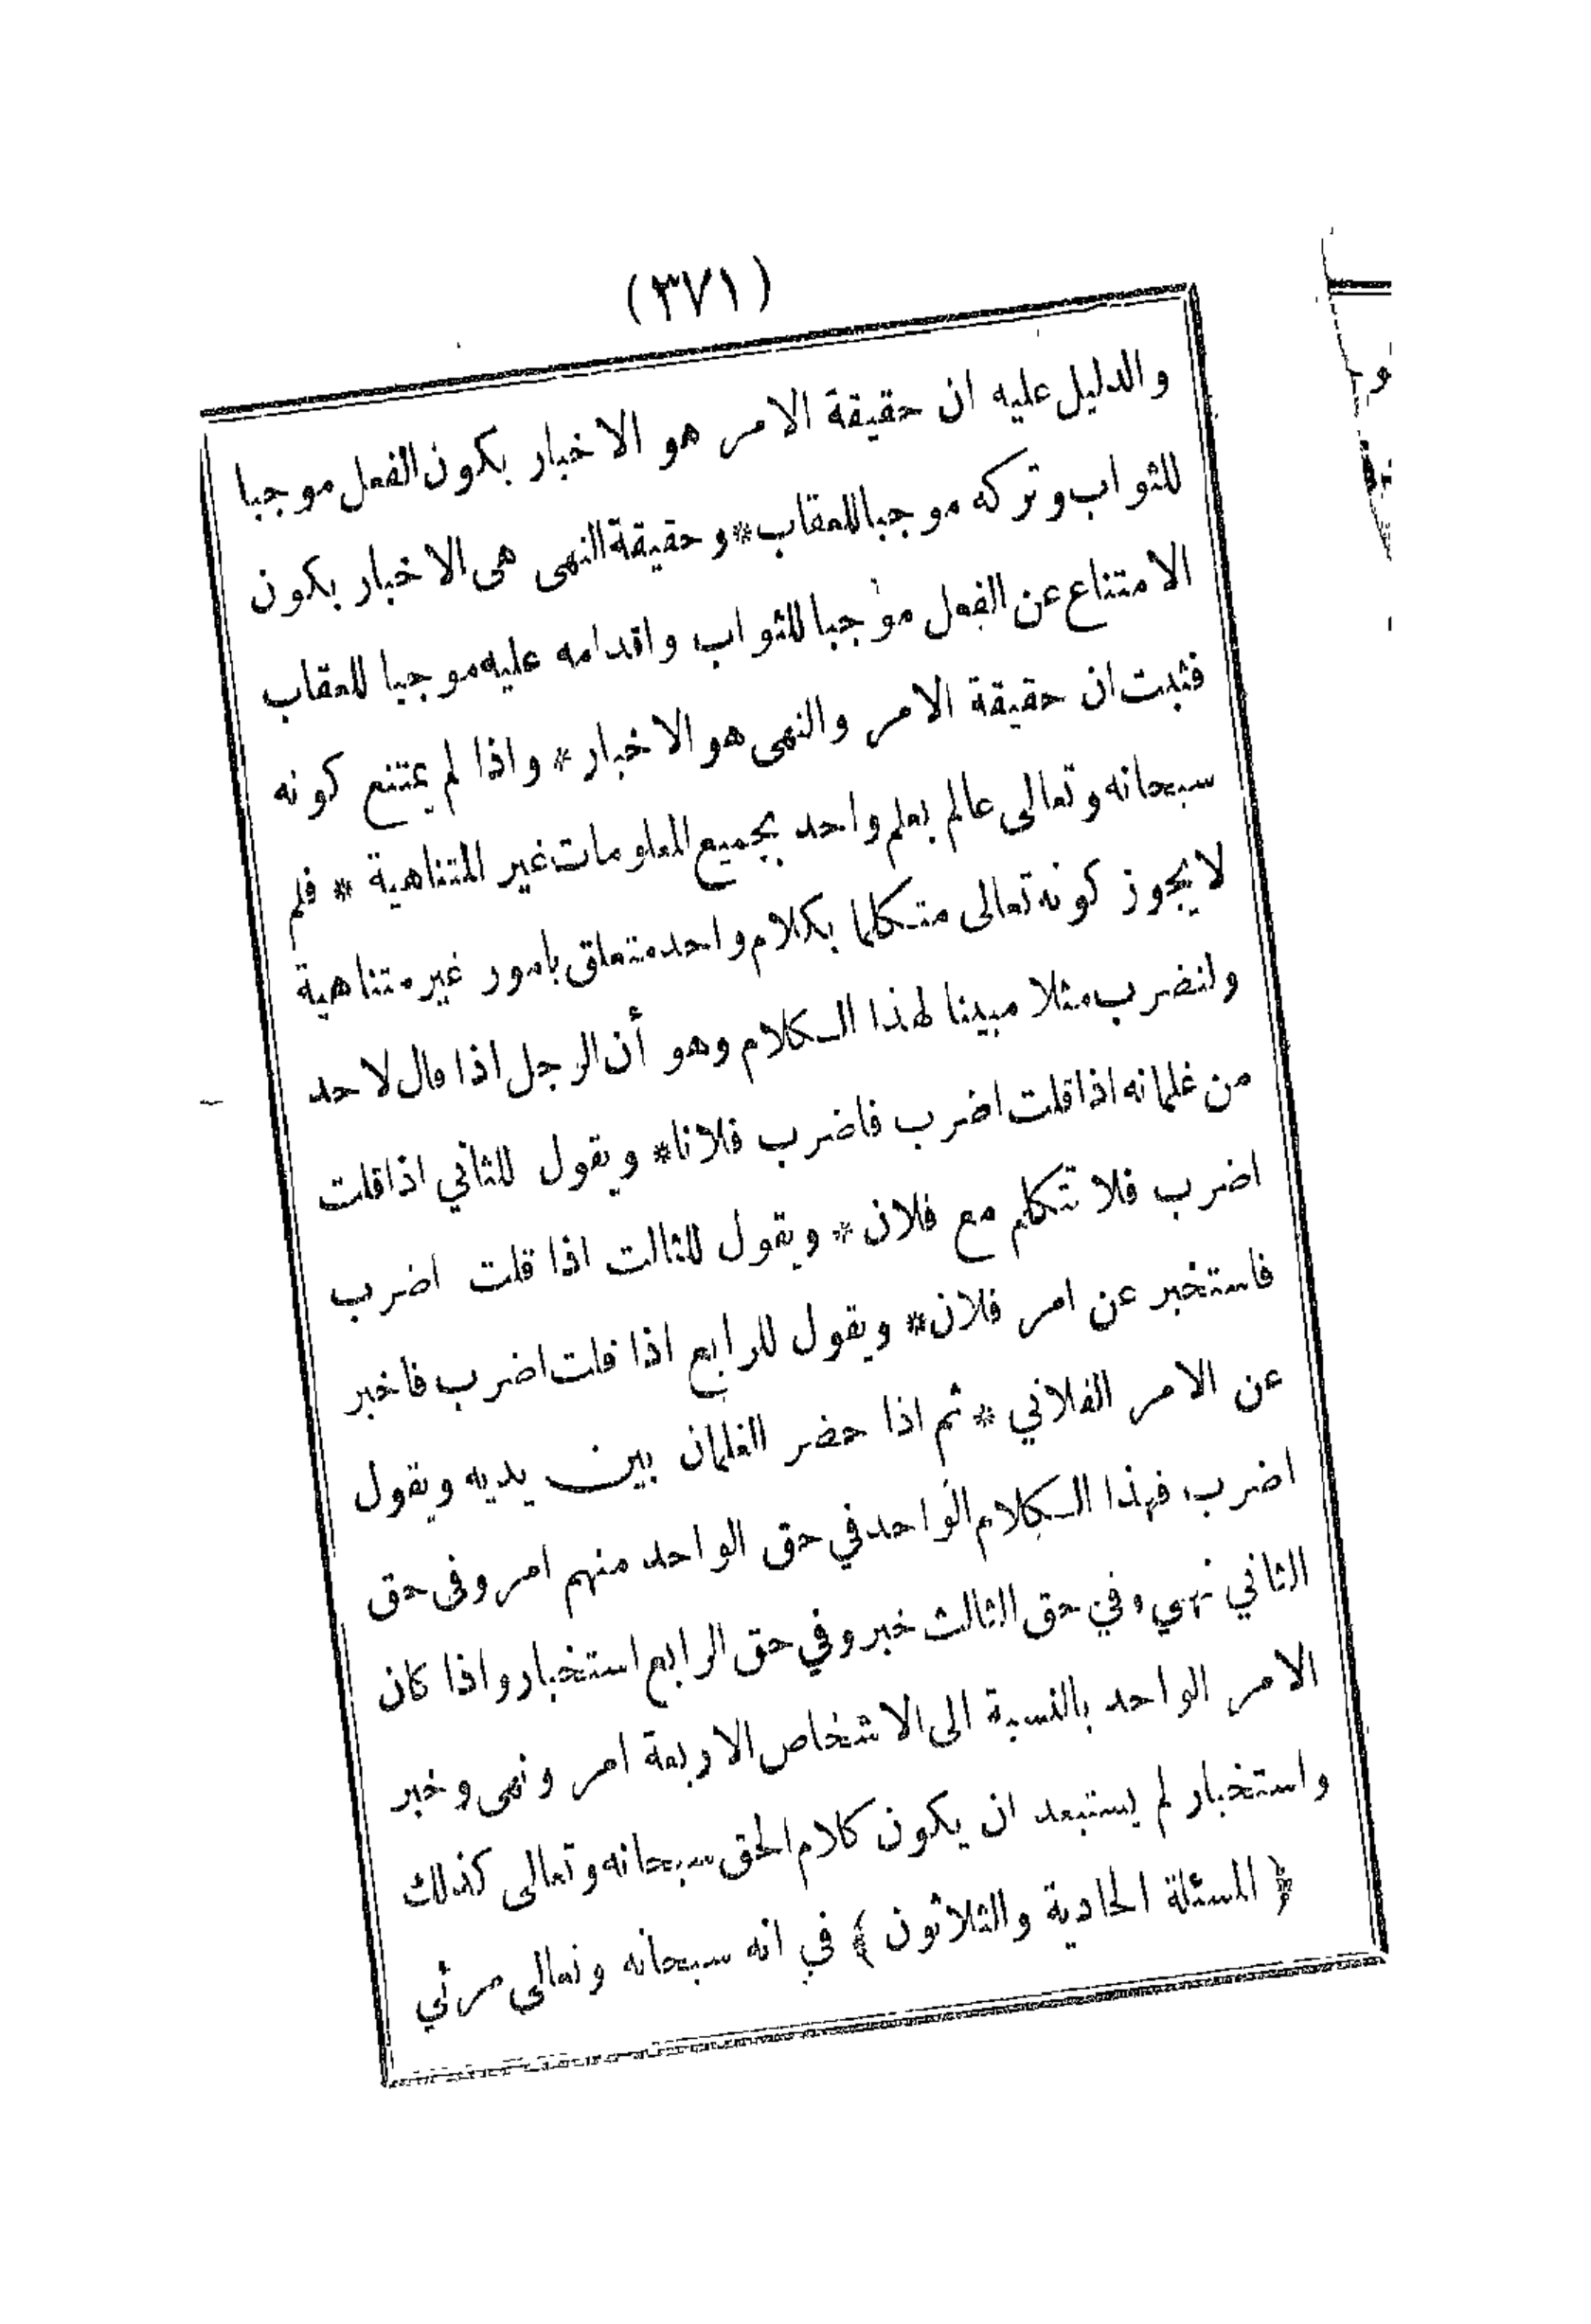 (٣٧١)
والدليل عليه ان حقيقة الامر هو الاخبار بكون الفعل موجبا
للثواب وتركه موجبا للعقاب * وحقيقة النهى هى الاخبار بكون
الامتناع عن الفعل موجبا للثواب واقدامه عليه موجبا للعقاب
فثبت ان حقيقة الامر والنهى هو الاخبار * واذا لم يمتنع كونه
سبحانه وتعالى عالم بعلم واحد بجميع المعلومات غير المتناهية * فلم
لا يجوز كونه تعالى متكلما بكلام واحد متعلق بامور غير متناهية
ولنضرب مثلا مبينا لهذا الكلام وهو أن الرجل اذا قال لاحد
من غلمانه اذا قلت اضرب فاضرب فلانا * ويقول للثاني اذا قلت
اضرب فلا تتكلم مع فلان * ويقول للثالت اذا قلت اضرب
فاستخبر عن امر فلان * ويقول للرابع اذا قلت اضرب فاخبر
عن الامر الفلاني * ثم اذا حضر الغلمان بين يديه ويقول
اضرب فهذا الكلام الواحد في حق الواحد منهم امر وفى حق
الثاني نهي وفي حق الثالث خبر وفي حق الرابع استخبار واذا كان
الامر الواحد بالنسبة الى الاشخاص الاربعة امر ونهى وخبر
واستخبار لم يستبعد ان يكون كلام الحق سبحانه وتعالى كذلك
﴿ المسئلة الحادية والثلاثون ﴾ في انه سبحانه وتعالى مرئي